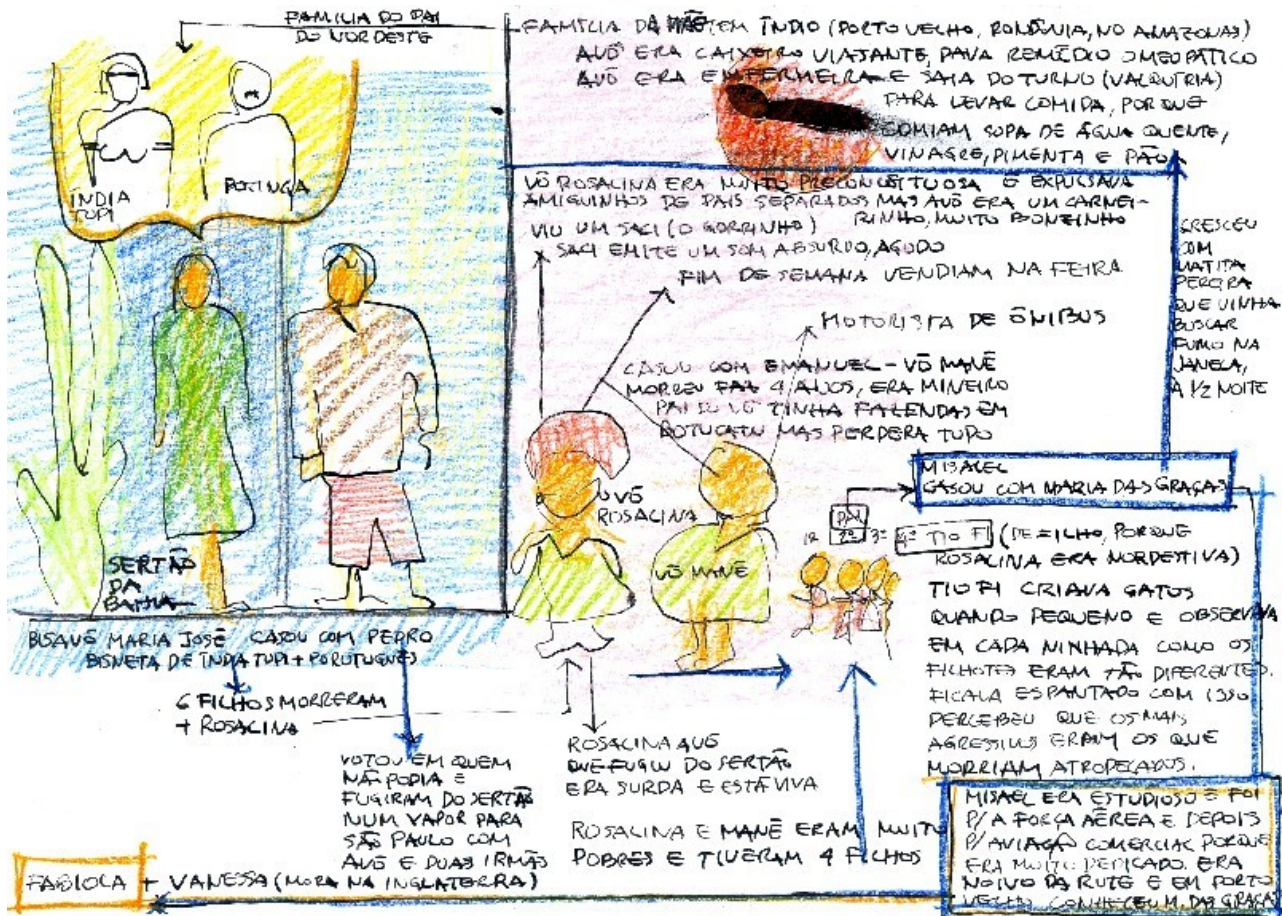 FAMILIA DO PAI
DO NORDESTE
ÍNDIA
TUPI
PORTUGA
SERTÃO
DA
BAHIA
BISAVÓ MARIA JOSÉ CASOU COM PEDRO
BISNETA DE ÍNDIA TUPI + PORUTUGUÊS
6 FILHOS MORRERAM
+ ROSALINA
VOTOU EM QUEM
NÃO PODIA E
FUGIRAM DO SERTÃO
NUM VAPOR PARA
SÃO PAULO COM
AVÓ E DUAS IRMÃS
FAMÍLIA DA MÃE TEM ÍNDIO (PORTO VELHO, RONDÔNIA, NO AMAZONAS)
AVÔ ERA CAIXEIRO VIAJANTE, DAVA REMÉDIO OMEOPÁTICO
AVÓ ERA ENFERMEIRA E SAIA DO TURNO (VALQUTRIA)
PARA LEVAR COMIDA, PORQUE
COMIAM SOPA DE ÁGUA QUENTE,
VINAGRE, PIMENTA E PÃO
VÓ ROSALINA ERA MUITO PRECONCEITUOSA E EXPULSAVA
AMIGUINHOS DE PAIS SEPARADOS MAS AVÔ ERA UM CARNEI-
RINHO, MUITO BONZINHO
VIU UM SACI (O GORRINHO)
SACI EMITE UM SOM ABSURDO, AGUDO
FIM DE SEMANA VENDIAM NA FEIRA
MOTORISTA DE ÔNIBUS
CASOU COM EMANUEL - VÔ MANÉ
MORREU FAZ 4 ANOS, ERA MINEIRO
PAI DO VÔ TINHA FAZENDAS EM
BOTUCATU MAS PERDERA TUDO
CRESCEU
COM
MATITA
PEREIRA
QUE VINHA
BUSCAR
FUMO NA
JANELA,
A 1/2 NOITE
VÓ
ROSALINA
VÔ MANÉ
MISAEL
CASOU COM MARIA DAS GRAÇAS
PAI
1º 2º 3º 4º TIO FI (DE FILHO, PORQUE
ROSALINA ERA NORDESTINA)
TIO FI CRIAVA GATOS
QUANDO PEQUENO E OBSERVAVA
EM CADA NINHADA COMO OS
FILHOTES ERAM TÃO DIFERENTES.
FICAVA ESPANTADO COM ISSO
PERCEBEU QUE OS MAIS
AGRESSIVOS ERAM OS QUE
MORRIAM ATROPELADOS.
ROSALINA AVÓ
QUE FUGIU DO SERTÃO
ERA SURDA E ESTÁ VIVA
ROSALINA E MANÉ ERAM MUITO
POBRES E TIVERAM 4 FILHOS
MISAEL ERA ESTUDIOSO E FOI
P/ A FORÇA AÉREA E DEPOIS
P/ AVIAÇÃO COMERCIAL PORQUE
ERA MUITO DEDICADO. ERA
NOIVO DA RUTE E EM PORTO
VELHO CONHECEU M. DAS GRAÇAS
FABIOLA + VANESSA (MORA NA INGLATERRA)